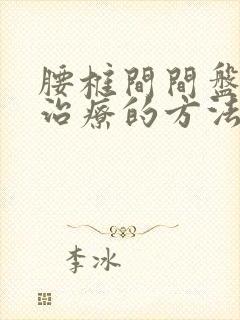 腰椎間間盤
治療的方法
李冰